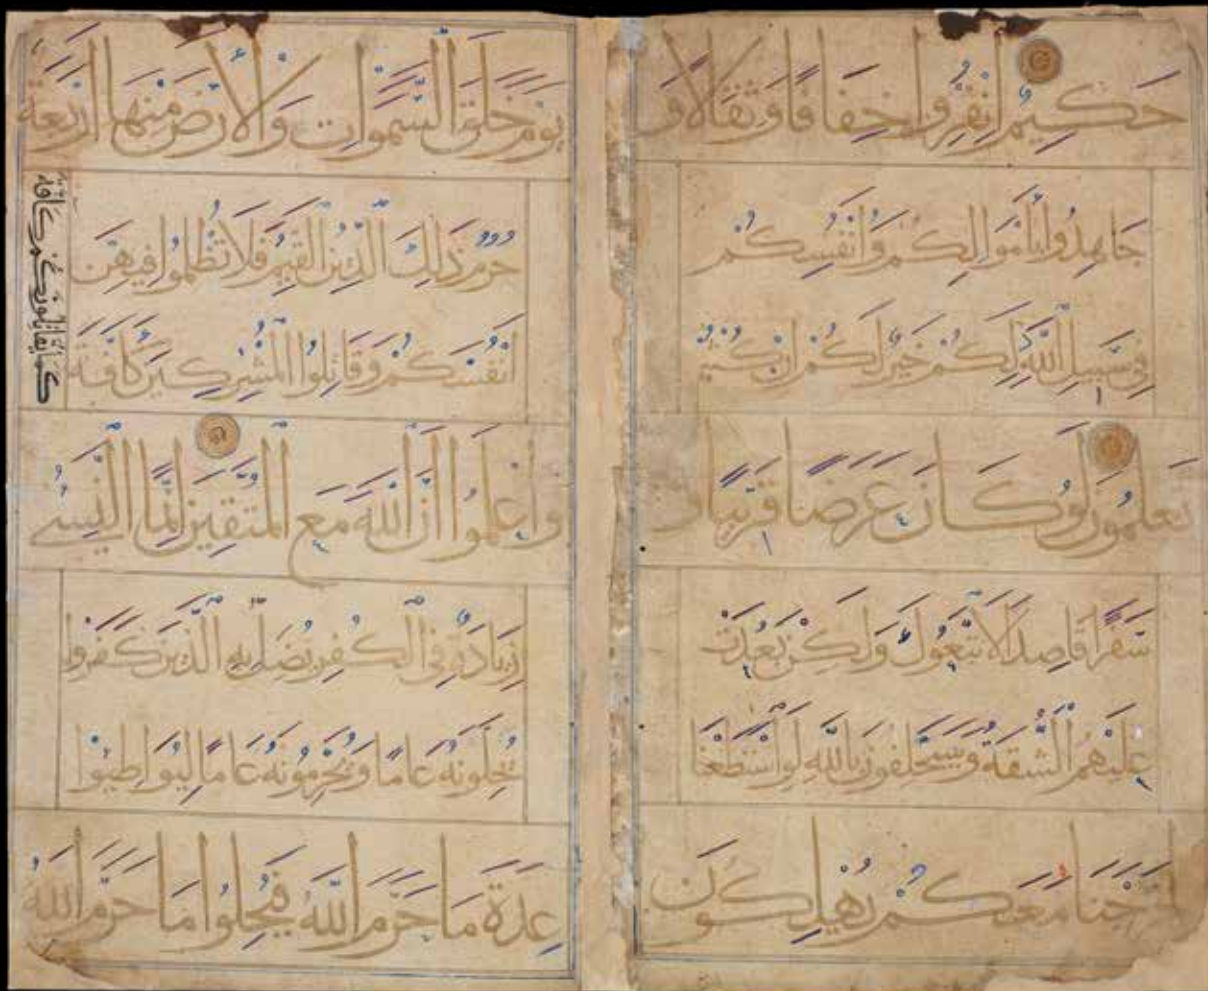 حَكِيمٌ انْفِرُوا خِفَافًا وَثِقَالًا وَ
جَاهِدُوا بِأَمْوَالِكُمْ وَأَنْفُسِكُمْ
فِي سَبِيلِ اللَّهِ ذَلِكُمْ خَيْرٌ لَكُمْ إِنْ كُنْتُمْ
تَعْلَمُونَ لَوْ كَانَ عَرَضًا قَرِيبًا وَ
سَفَرًا قَاصِدًا لَاتَّبَعُوكَ وَلَكِنْ بَعُدَتْ
عَلَيْهِمُ الشُّقَّةُ وَسَيَحْلِفُونَ بِاللَّهِ لَوِ اسْتَطَعْنَا
لَخَرَجْنَا مَعَكُمْ يُهْلِكُونَ
يَوْمَ خَلَقَ السَّمَوَاتِ وَالْأَرْضَ مِنْهَا أَرْبَعَةٌ
حُرُمٌ ذَلِكَ الدِّينُ الْقَيِّمُ فَلَا تَظْلِمُوا فِيهِنَّ
أَنْفُسَكُمْ وَقَاتِلُوا الْمُشْرِكِينَ كَافَّةً
كَمَا يُقَاتِلُونَكُمْ كَافَّةً
وَاعْلَمُوا أَنَّ اللَّهَ مَعَ الْمُتَّقِينَ إِنَّمَا النَّسِيءُ
زِيَادَةٌ فِي الْكُفْرِ يُضَلُّ بِهِ الَّذِينَ كَفَرُوا
يُحِلُّونَهُ عَامًا وَيُحَرِّمُونَهُ عَامًا لِيُوَاطِئُوا
عِدَّةَ مَا حَرَّمَ اللَّهُ فَيُحِلُّوا مَا حَرَّمَ اللَّهُ